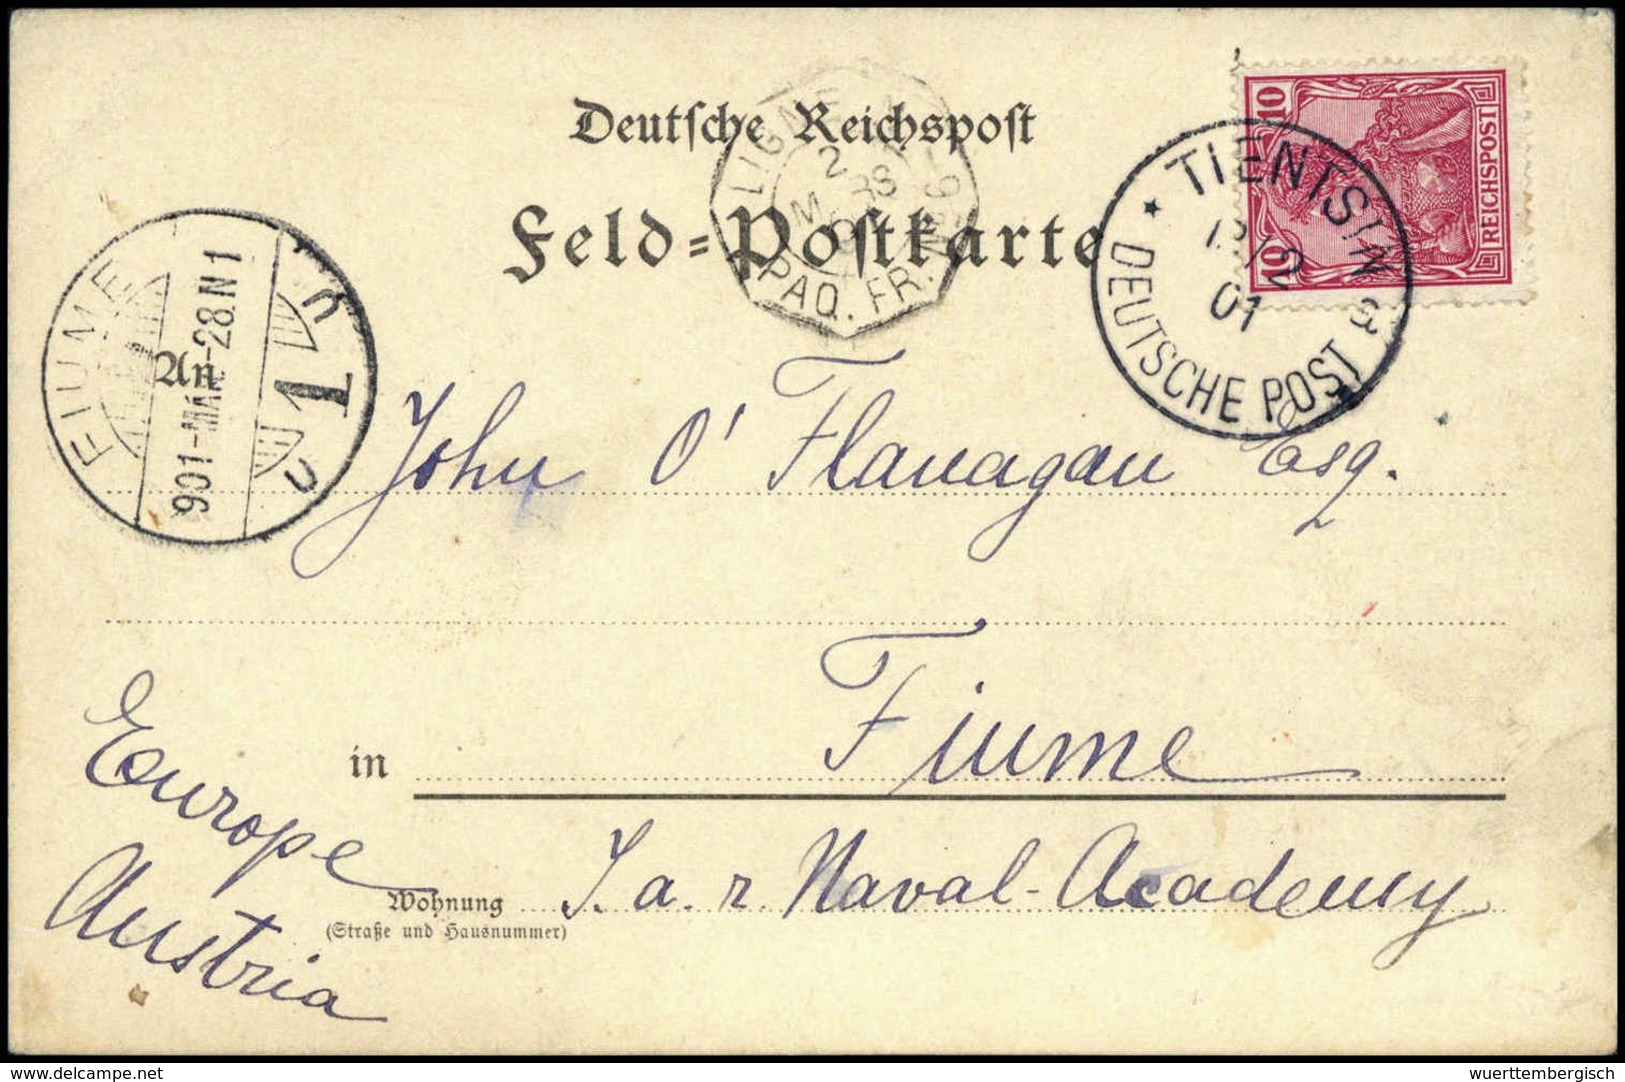 Deutsche Reichspost
Feld-Postkarte
LIGNE N
PAQ. FR.
2
MARS
10
REICHSPOST
10
* TIENTSIN
12/2
01
DEUTSCHE POST
FIUME
901-MÁR-28.N1
An
John O'Flanagan Esq.
in Fiume
Europe
Austria
Wohnung I. a. r. Naval-Academy
(Straße und Hausnummer)
www.delcampe.net
wuerttembergisch